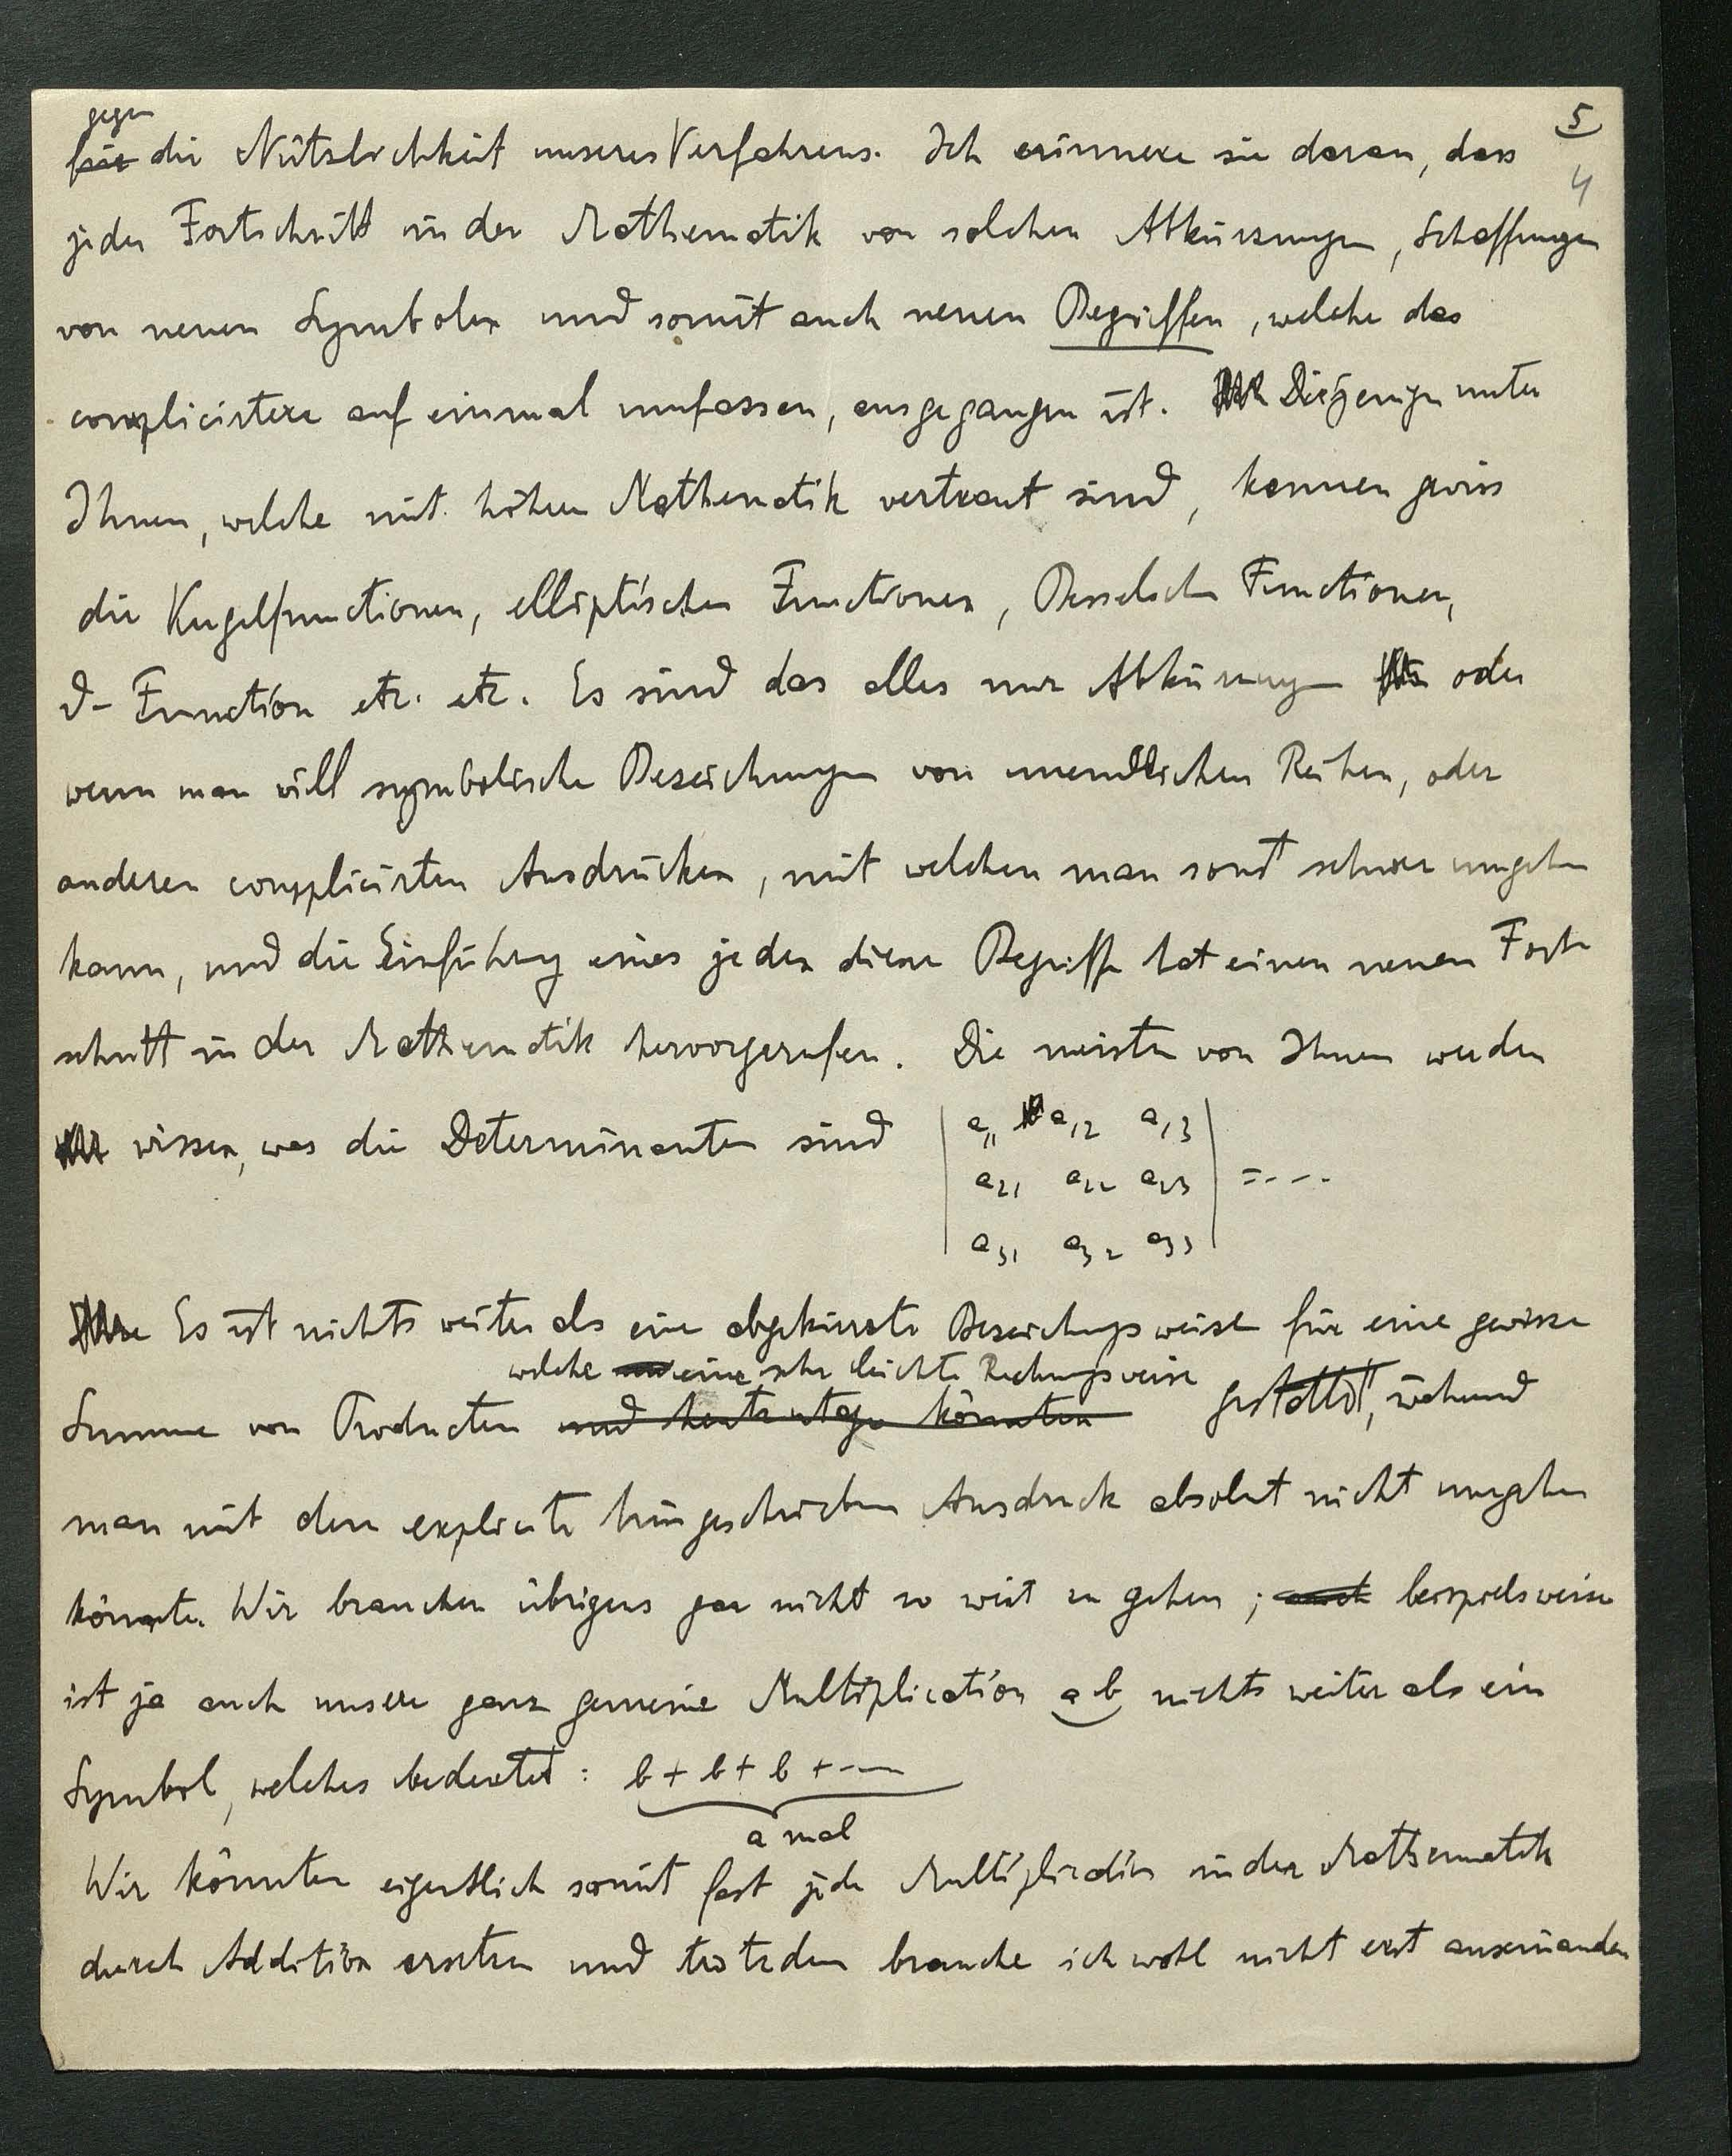 5
4
gegen
für die Nützlichkeit unseres Verfahrens. Ich erinnere sie daran, dass
jeder Fortschritt in der Mathematik von solchen Abkürzungen, Schaffungen
von neuen Symbolen und somit auch neuen Begriffen, welche das
complicirtere auf einmal umfassen, ausgegangen ist. Diejenigen unter
Ihnen, welche mit höherer Mathematik vertraut sind, kennen gewiss
die Kugelfunctionen, elliptischen Functionen, Besselschen Functionen,
ϑ- Function etc. etc. Es sind das alles nur Abkürzungen oder
wenn man will symbolische Bezeichnungen von unendlichen Reihen, oder
anderen complicirten Ausdrücken, mit welchen man sonst schwer umgehen
kann, und die Einführung eines jeden dieser Begriffe hat einen neuen Fort
schritt in der Mathematik hervorgerufen. Die meisten von Ihnen werden
wissen, was die Determinanten sind
a11 a12 a13
a21 a22 a23 = ....
a31 a32 a33
Es ist nichts weiter als eine abgekürzte Bezeichnungsweise für eine gewisse
welche eine sehr leichte Rechnungsweise
Summe von Producten und könnten gestattet, während
man mit dem explicite hingeschrieben Ausdruck absolut nicht umgehen
könnte. Wir brauchen übrigens gar nicht so weit zu gehen; auch beispielsweise
ist ja auch unsere ganz gemeine Multiplication ab nichts weiter als ein
Symbol, welches bedeutet: b + b + b + ...
a mal
Wir könnten eigentlich somit fast jede Multiplication in der Mathematik
durch Addition ersetzen und trotzdem brauche ich wohl nicht erst auseinander